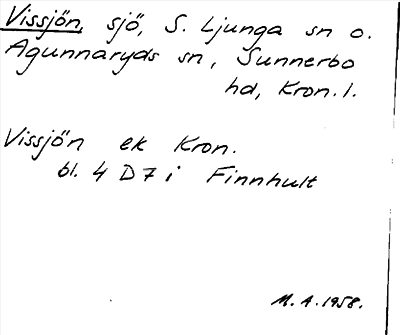 Vissjön, sjö, S. Ljunga sn o.
Agunnaryds sn, Sunnerbo
hd, Kron. l.
Vissjön ek Kron.
bl. 4 D7i Finnhult
M. A. 1958.